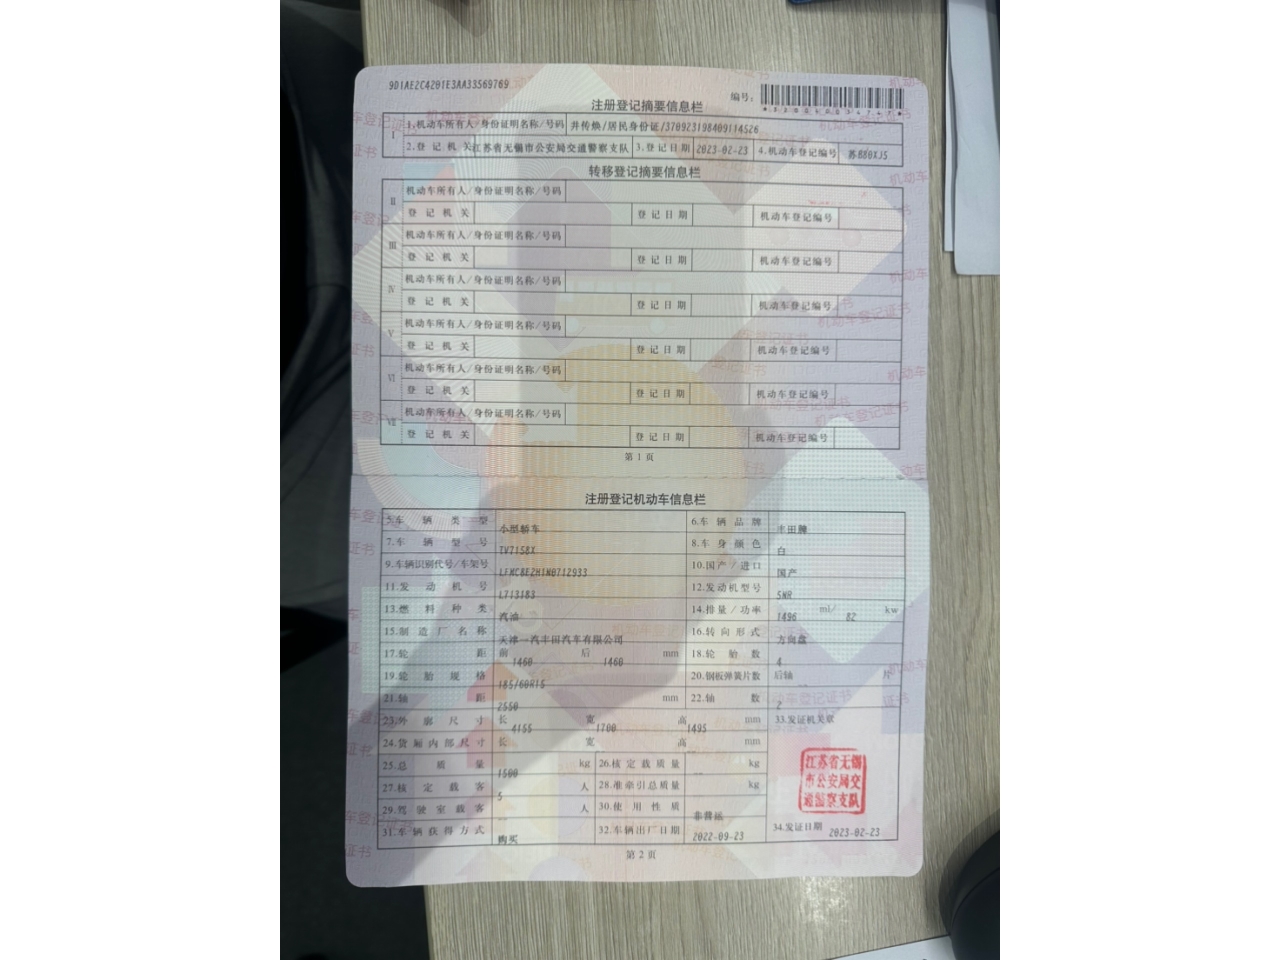 9D1AE2C4201E3AA33569769
编号:
注册登记摘要信息栏
I 1.机动车所有人/身份证明名称/号码 井传焕/居民身份证/370923198409114526
2.登记机关 江苏省无锡市公安局交通警察支队 3.登记日期 2023-02-23 4.机动车登记编号
转移登记摘要信息栏
II 机动车所有人/身份证明名称/号码
登记机关 登记日期 机动车登记编号
III 机动车所有人/身份证明名称/号码
登记机关 登记日期 机动车登记编号
IV 机动车所有人/身份证明名称/号码
登记机关 登记日期 机动车登记编号
V 机动车所有人/身份证明名称/号码
登记机关 登记日期 机动车登记编号
VI 机动车所有人/身份证明名称/号码
登记机关 登记日期 机动车登记编号
VII 机动车所有人/身份证明名称/号码
登记机关 登记日期 机动车登记编号
第1页
注册登记机动车信息栏
5.车辆类型 小型轿车 6.车辆品牌 丰田牌
7.车辆型号 TV7158X 8.车身颜色 白
9.车辆识别代号/车架号 LFMC8E2H1N0712933 10.国产/进口 国产
11.发动机号 L713183 12.发动机型号 5NR
13.燃料种类 汽油 14.排量/功率 1496 ml/ 82 kw
15.制造厂名称 天津一汽丰田汽车有限公司 16.转向形式 方向盘
17.轮距 前 1460 后 1460 mm 18.轮胎数 4
19.轮胎规格 185/60R15 20.钢板弹簧片数 后轴 -- 片
21.轴距 2550 mm 22.轴数 2
23.外廓尺寸 长 4155 宽 1700 高 1495 mm 33.发证机关章
24.货厢内部尺寸 长 宽 高 mm
25.总质量 1500 kg 26.核定载质量 -- kg
27.核定载客 5 人 28.准牵引总质量 kg
29.驾驶室载客 -- 人 30.使用性质 非营运
31.车辆获得方式 购买 32.车辆出厂日期 2022-09-23 34.发证日期 2023-02-23
江苏省无锡
市公安局交
通警察支队
第2页